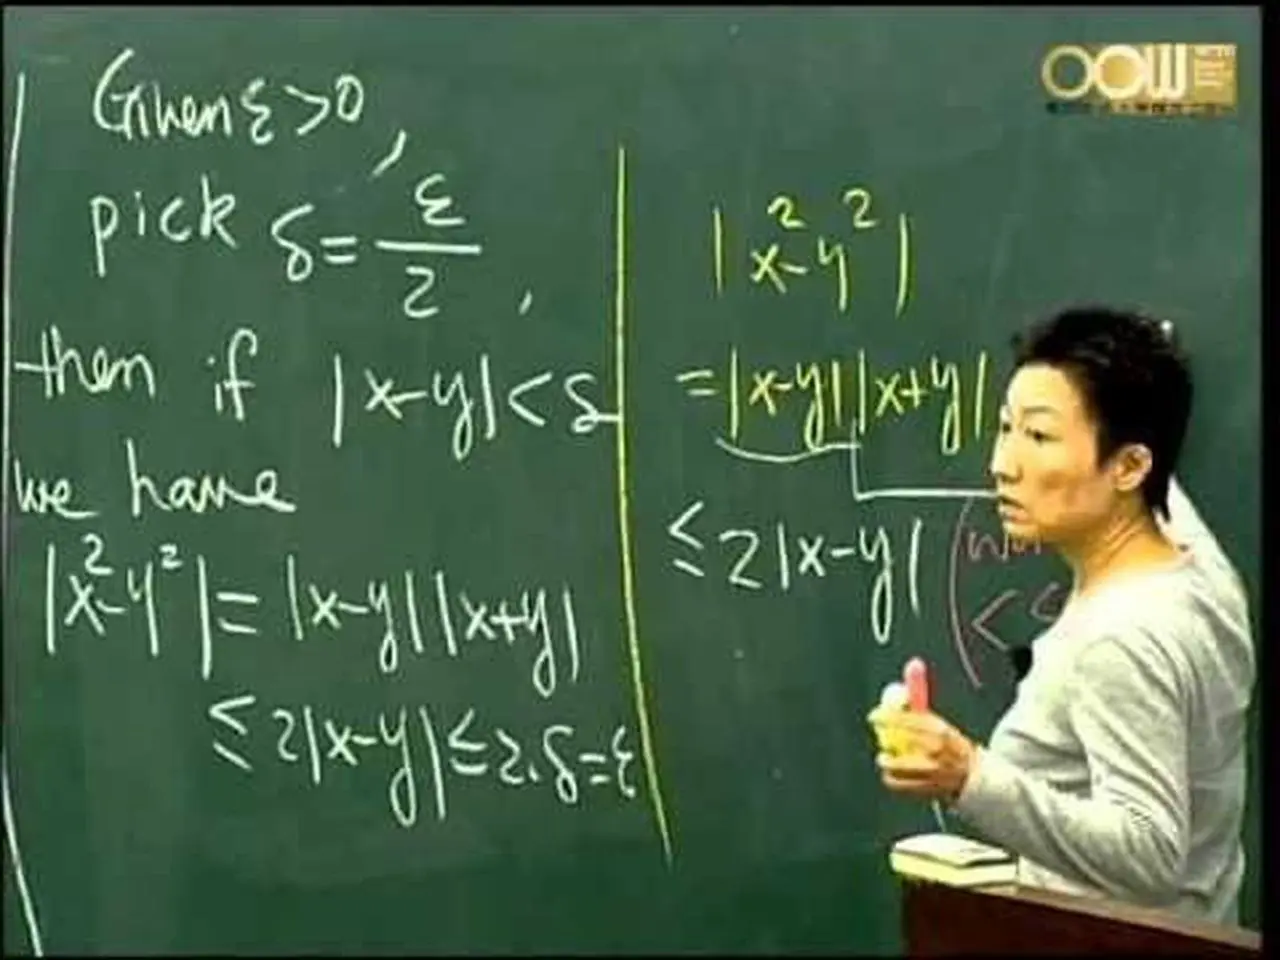 Given ε>0,
pick δ = ε/2,
then if |x-y|<δ
we have
|x²-y²| = |x-y||x+y|
≤ 2|x-y| ≤ 2·δ = ε
|x²-y²|
= |x-y||x+y|
≤ 2|x-y|
<
OCW